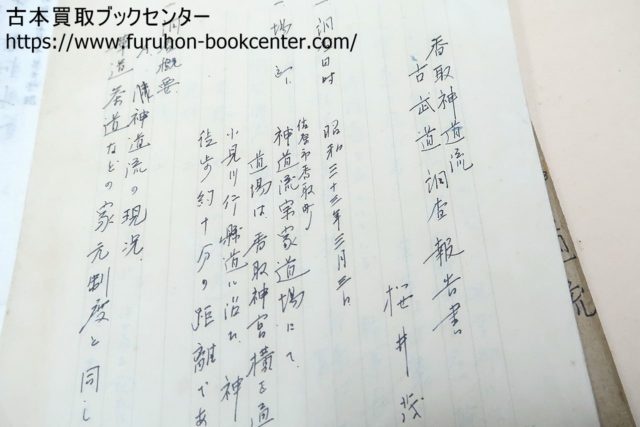 古本買取ブックセンター
https://www.furuhon-bookcenter.com/
香取神道流
古武道調査報告書
桜井
一 調査日時
昭和三十三年三月三日
一 場所
佐原市香取町
神道流宗家道場にて
道場は、香取神宮横を通
小見川行縣道に沿ひ、神
徒歩約十分の距離であ
概要
神道流の現況
華道茶道などの家元制度と同じ
流